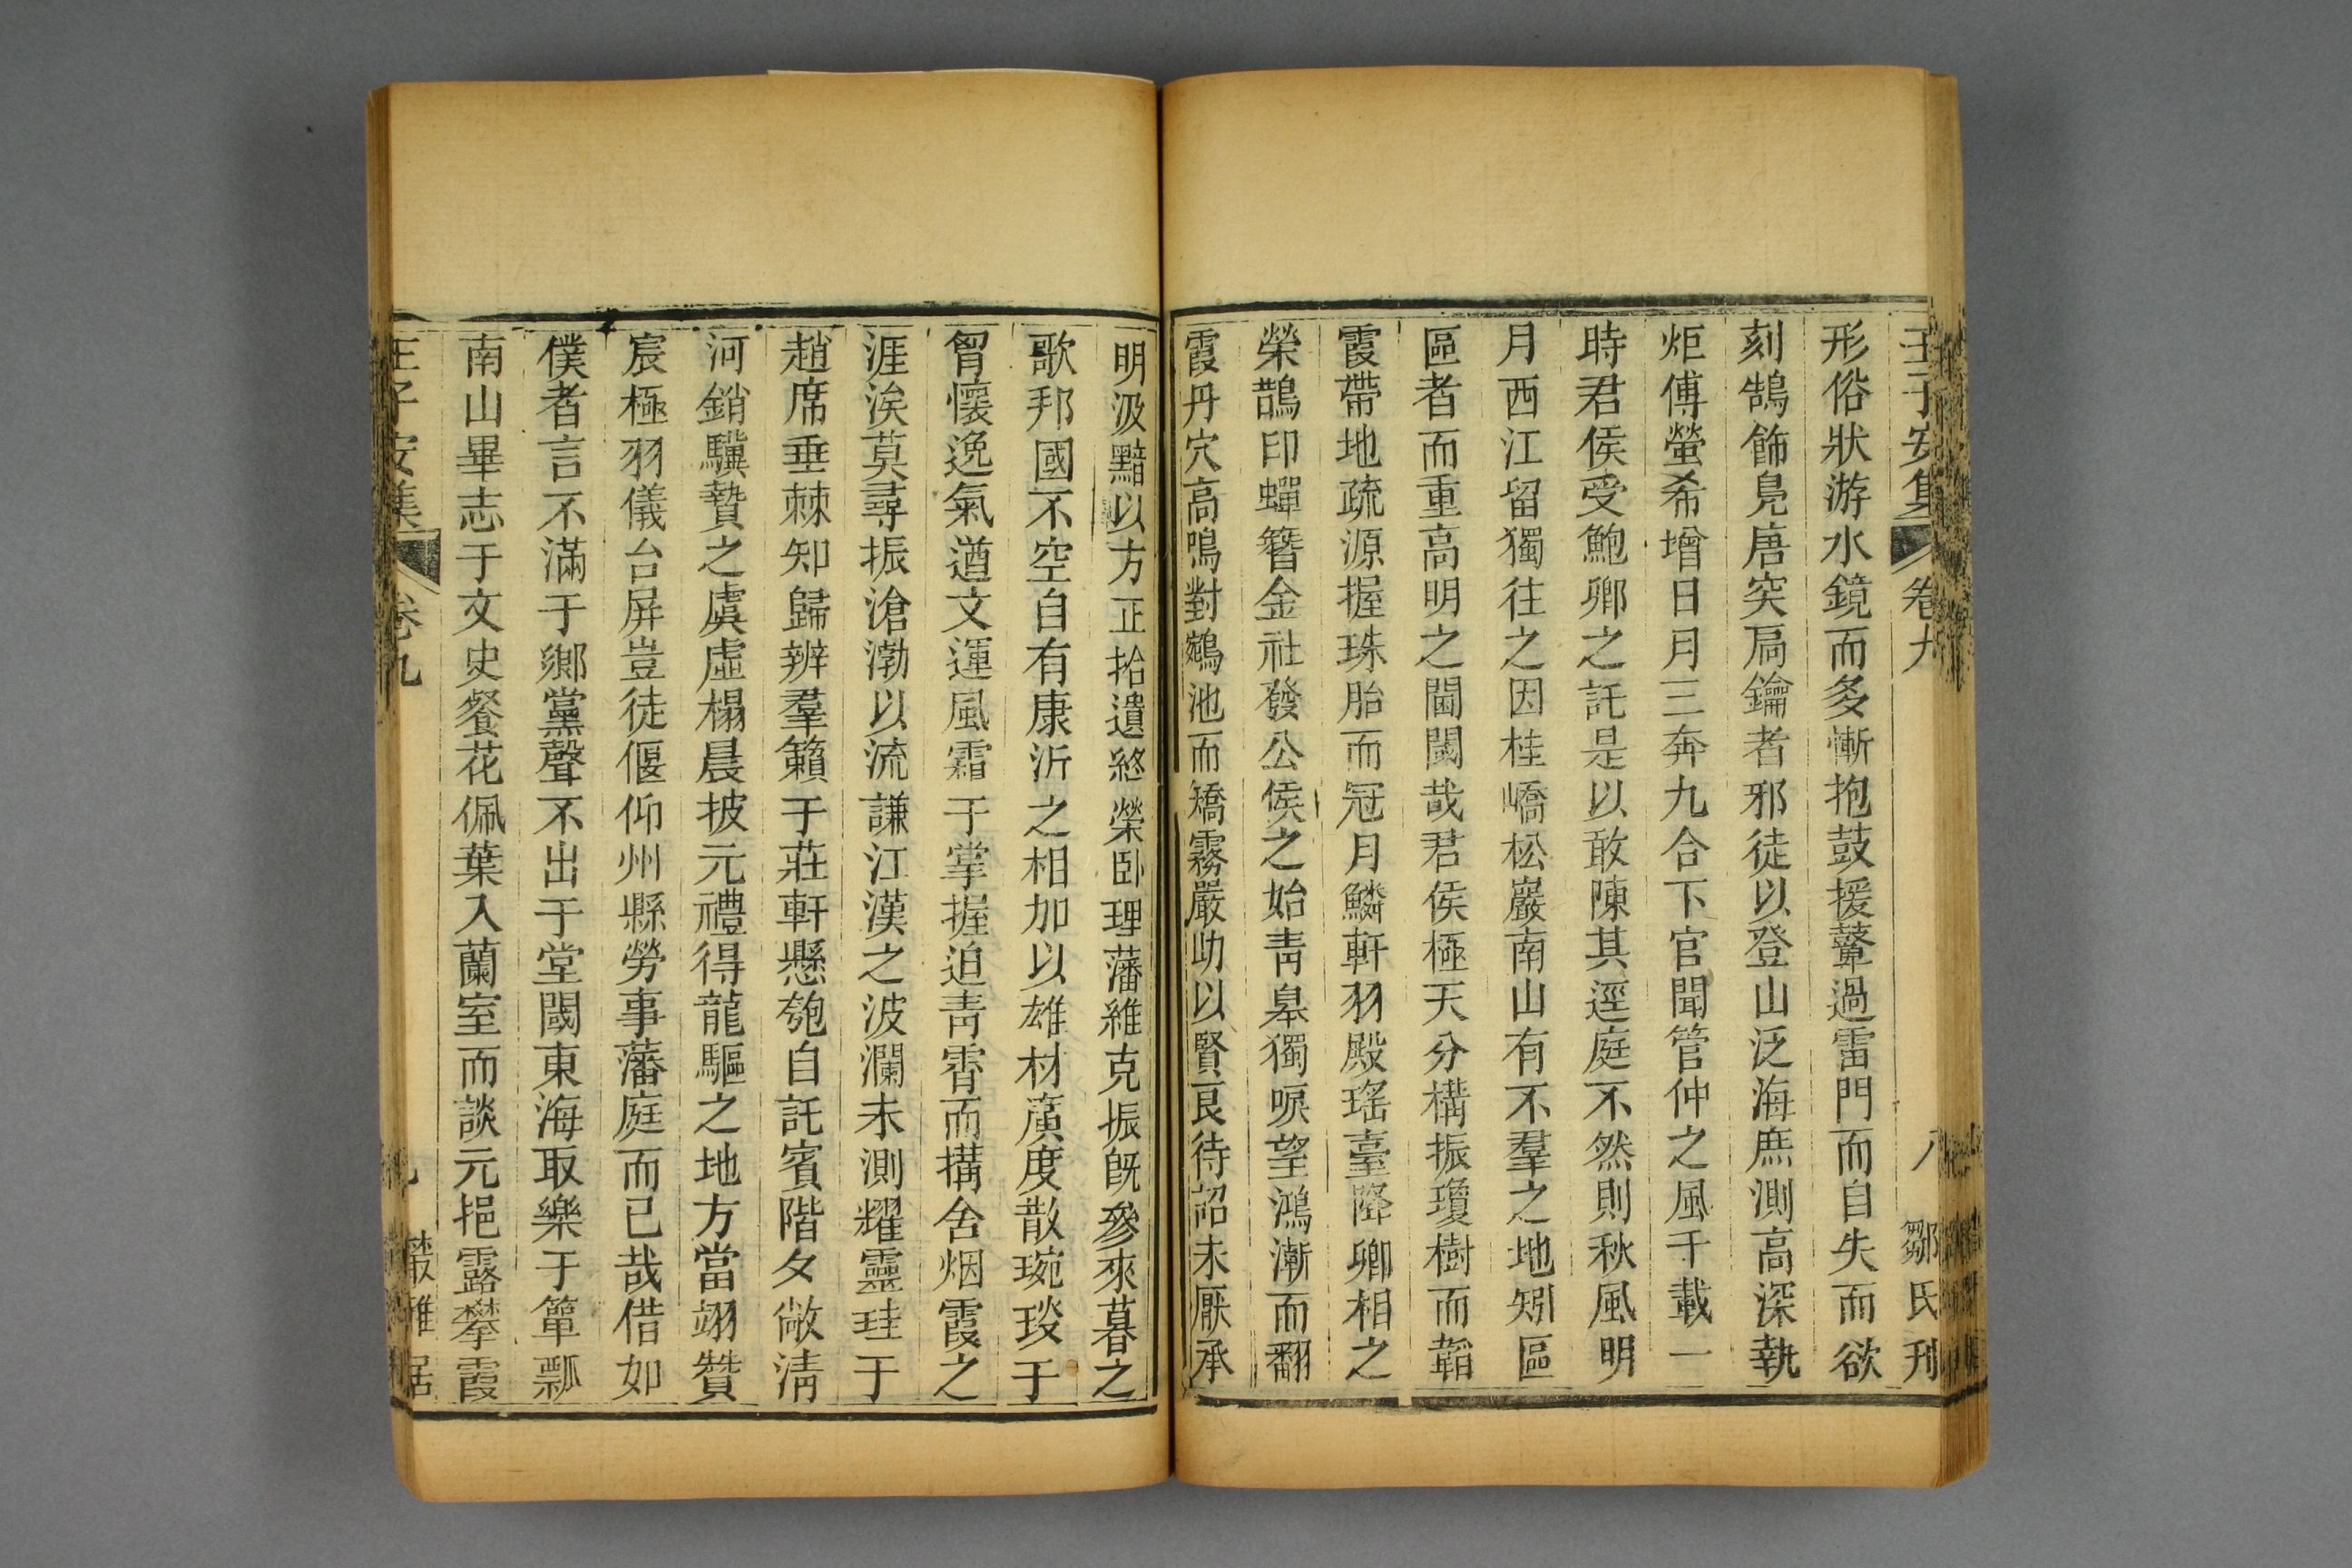 王子安集 卷九 八 鄒氏刊
形俗狀游水鏡而多慚抱鼓援鼙過雷門而自失而欲
刻鵠飾鳧唐突扃鑰者邪徒以登山泛海庶測高深執
炬傅螢希增日月三奔九合下官聞管仲之風千載一
時君侯受鮑卿之託是以敢陳其逕庭不然則秋風明
月西江留獨往之因桂嶠松巖南山有不羣之地矧區
區者而重高明之閫閾哉君侯極天分構振瓊樹而韜
霞帶地疏源握珠胎而冠月鱗軒羽殿瑤臺降卿相之
榮鵲印蟬簪金社發公侯之始靑臯獨唳望鴻漸而翻
霞丹穴高鳴對鵷池而矯霧嚴助以賢良待詔未厭承
明汲黯以方正拾遺終榮卧理藩維克振旣參來暮之
歌邦國不空自有康沂之相加以雄材廣度散琬琰于
胷懷逸氣遒文運風霜于掌握迫靑霄而構舍烟霞之
涯涘莫尋振滄渤以流謙江漢之波瀾未測耀靈珪于
趙席垂棘知歸辨羣籟于莊軒懸匏自託賓階夕敞淸
河銷驥贄之虞虛榻晨披元禮得龍驅之地方當翊贊
宸極羽儀台屛豈徒偃仰州縣勞事藩庭而已哉借如
僕者言不滿于鄉黨聲不出于堂閾東海取樂于簞瓢
南山畢志于文史餐花佩葉入蘭室而談元挹露攀霞
王子安集 卷九 九 叢雅居